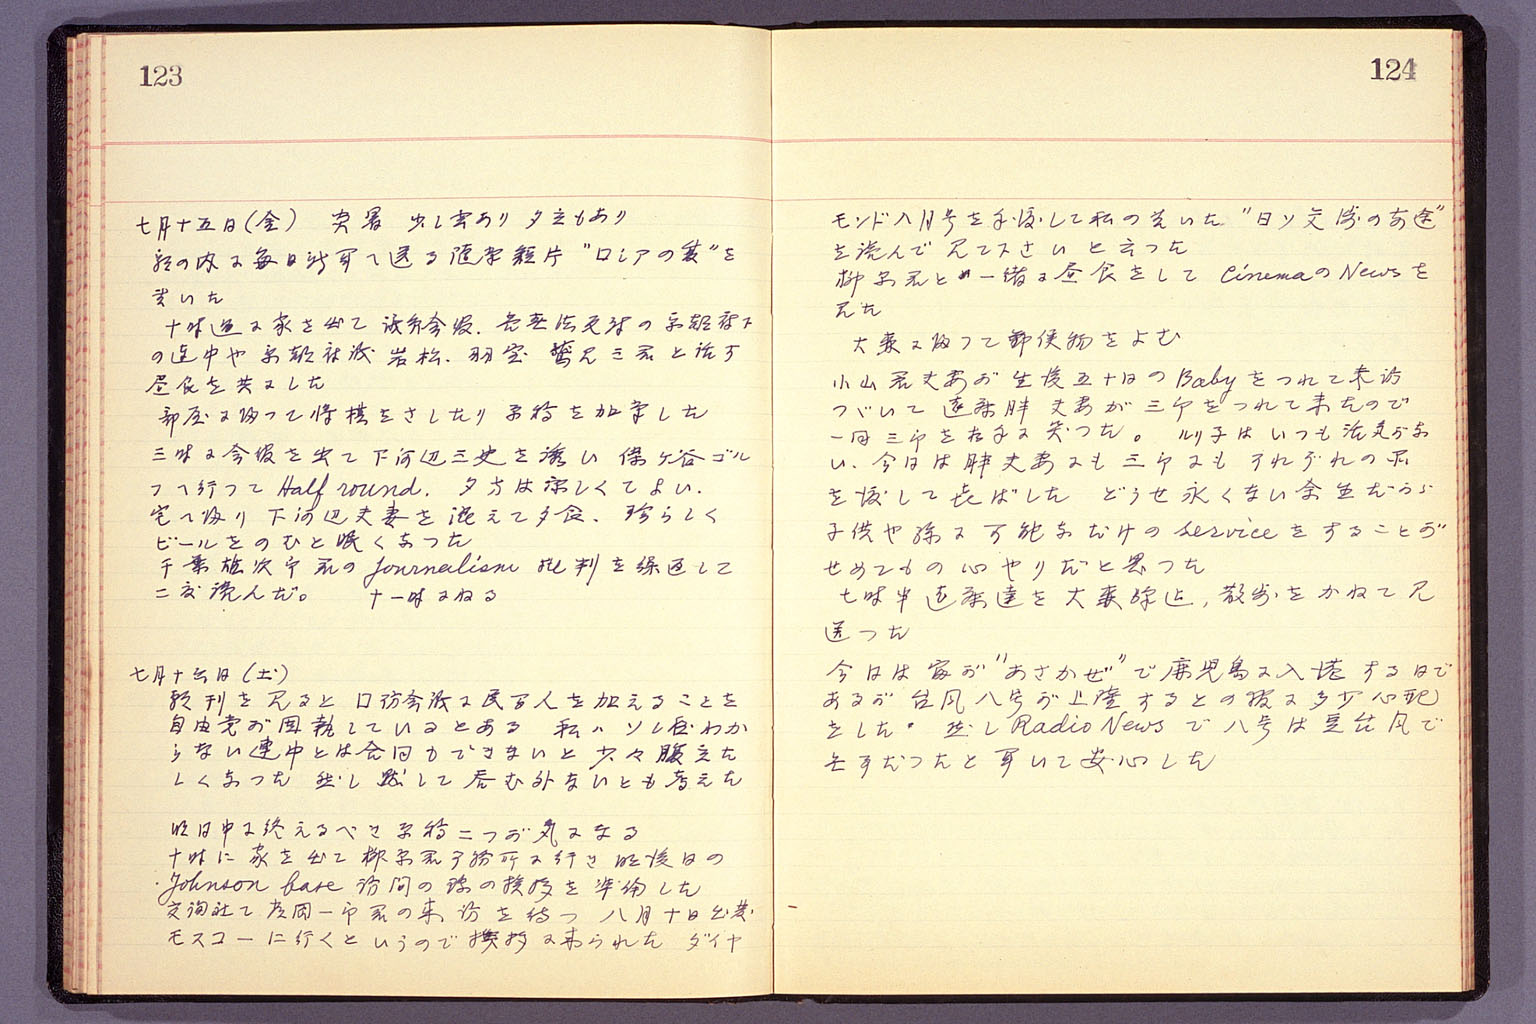 123
七月十五日(金) 突暑 少し雲あり 夕立もあり
朝の内に毎日新聞へ送る随筆短片 "ロシアの夏"を
書いた
十時過に家を出て 会館.
の連中や 岩松. 羽室 鷲見三君と話す
昼食を共にした
部屋に帰つて将棋をさしたり 原稿を加筆した
三時に会館を出て下河辺三史を誘い 保ケ谷ゴル
フへ行つて Half round. 夕方は涼しくてよい.
宅へ帰り 下河辺夫妻を混えて夕食. 珍らしく
ビールをのむと眠くなつた
千葉雄次郎君の Journalism 批判を繰返して
二度読んだ。 十一時にねる
七月十六日(土)
朝刊を見ると 口訪ソ議に民間人を加えることを
自由党が固執しているとある 私ハソレ程わか
らない連中とは合同もできまいと 少々腹立た
しくなつた 然し黙して呑む外ないとも考えた
昨日中に終えるべき原稿二つが気になる
十時に家を出て 柳原君事務所に行き 明後日の
Johnson base 訪問の際の挨拶を準備した
交詢社で 岡一郎君の来訪を待つ 八月十日出発
モスコーに行くというので挨拶に来られた ダイヤ
124
モンド八月号を手渡して私の書いた "日ソ交渉の前途"
を読んで見て下さいと言つた
柳原君と一緒に昼食をして CinemaのNewsを
見た
大森に帰つて郵便物をよむ
小山君夫妻が 生後五十日のBabyをつれて来訪
つづいて 遠藤胖 夫妻が三郎をつれて来たので
一同三郎を相手に笑つた。 ルリ子はいつも活気がな
い. 今日は胖夫妻にも三郎にもそれぞれの品
を渡して喜ばした どうせ永くない余生だから
子供や孫に可能なだけの serviceをすることが
せめてもの心やりだと思つた
七時半 遠藤達を大森駅迄, 散歩をかねて見
送つた
今日は宙が "あさかぜ"で鹿児島に入港する日で
あるが 台風八号が上陸するとの報に多少心配
をした. 然し Radio Newsで八号は豆台風で
無事だつたと聞いて安心した